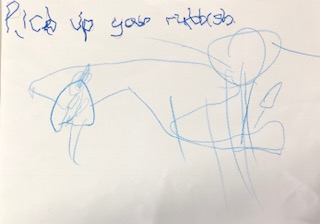 Pick up your rubbish